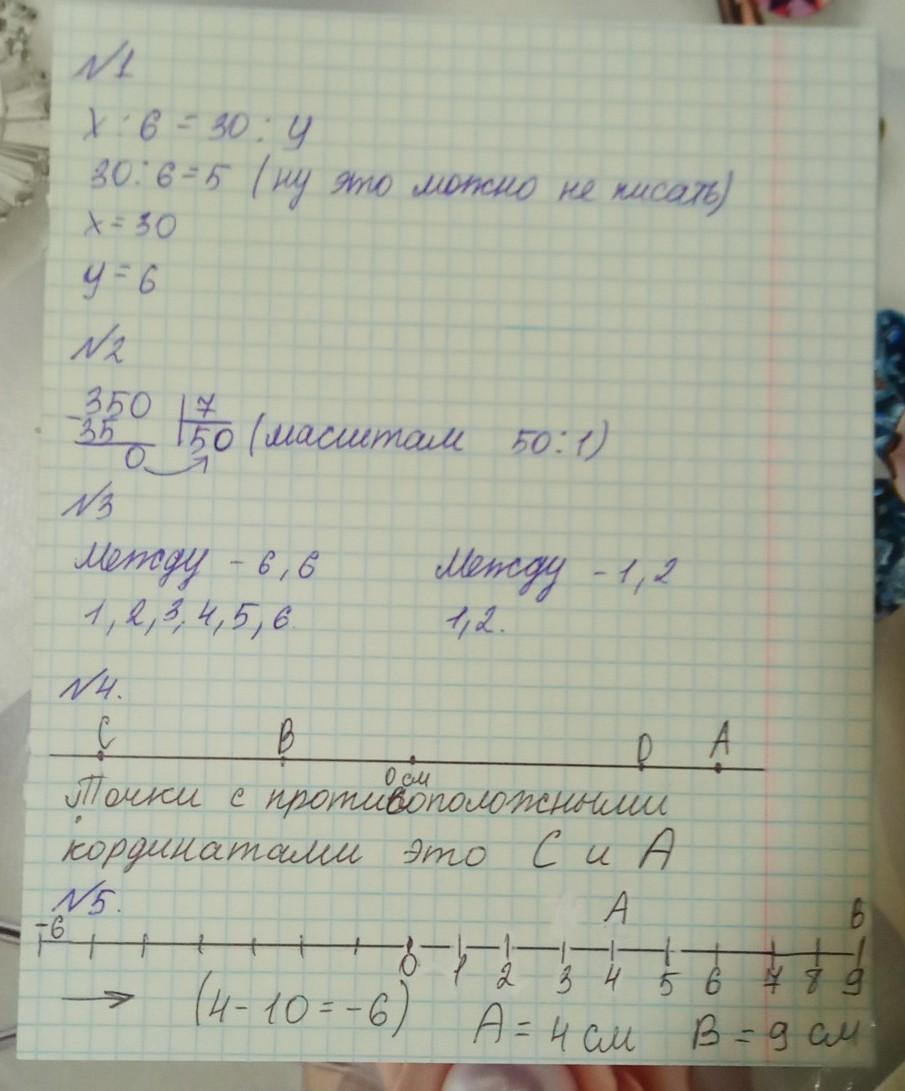 №1
x : 6 = 30 : y
30 : 6 = 5 (ну это можно не писать)
x = 30
y = 6
№2
-350 | 7
35 | 50 (масштам 50:1)
0
№3
Между -6,6 Между -1,2
1, 2, 3, 4, 5, 6. 1,2.
№4.
C B D A
0 см
Точки с противоположными
кординатами это C и A
№5.
A B
-6 0 1 2 3 4 5 6 7 8 9
→ (4-10=-6) A = 4 см B = 9 см